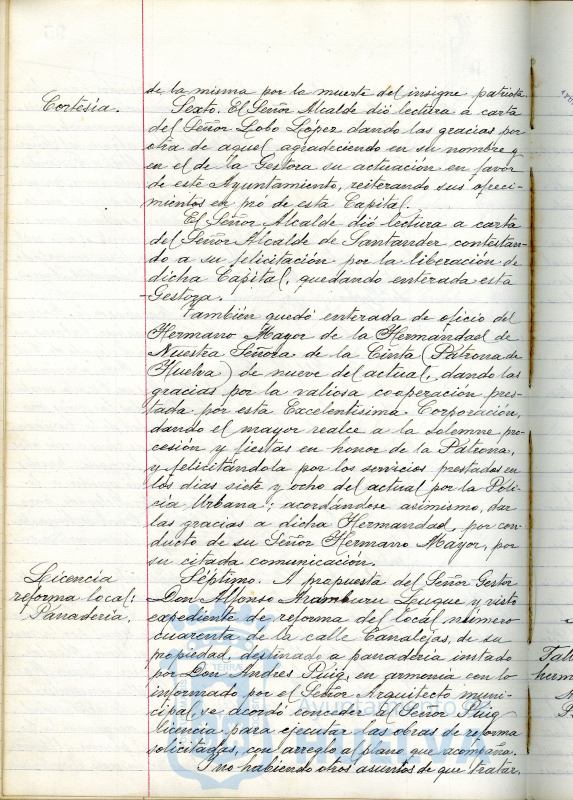 de la misma por la muerte del insigne patriota.
Cortesía.
Sexto. El Señor Alcalde dió lectura a carta
del Señor Lobo López dando las gracias por
otra de aquel agradeciendo en su nombre y
en el de la Gestora su actuación en favor
de este Ayuntamiento, reiterando sus ofreci-
mientos en pró de esta Capital.
El Señor Alcalde dió lectura a carta
del Señor Alcalde de Santander contestan-
do a su felicitación por la liberación de
dicha Capital, quedando enterada esta
Gestora.
También quedó enterada de oficio del
Hermano Mayor de la Hermandad de
Nuestra Señora de la Cinta (Patrona de
Huelva) de nueve del actual, dando las
gracias por la valiosa cooperación pres-
tada por esta Excelentísima Corporación,
dando el mayor realce a la solemne pro-
cesión y fiestas en honor de la Patrona,
y felicitándola por los servicios prestados en
los días siete y ocho del actual por la Poli-
cía Urbana; acordándose asimismo, dar
las gracias a dicha Hermandad, por con-
ducto de su Señor Hermano Mayor, por
su citada comunicación.
Licencia
reforma local:
Panadería.
Séptimo. A propuesta del Señor Gestor
Don Alfonso Aramburu Luque y visto
expediente de reforma del local número
cuarenta de la calle Canalejas, de su
propiedad, destinado a panadería instado
por Don Andres Puig, en armonía con lo
informado por el Señor Arquitecto muni-
cipal se acordó conceder al Señor Puig
licencia para ejecutar las obras de reforma
solicitadas, con arreglo al plano que acompaña.
Y no habiendo otros asuntos de que tratar,
Ayuntamiento de
HUELVA
TERRA